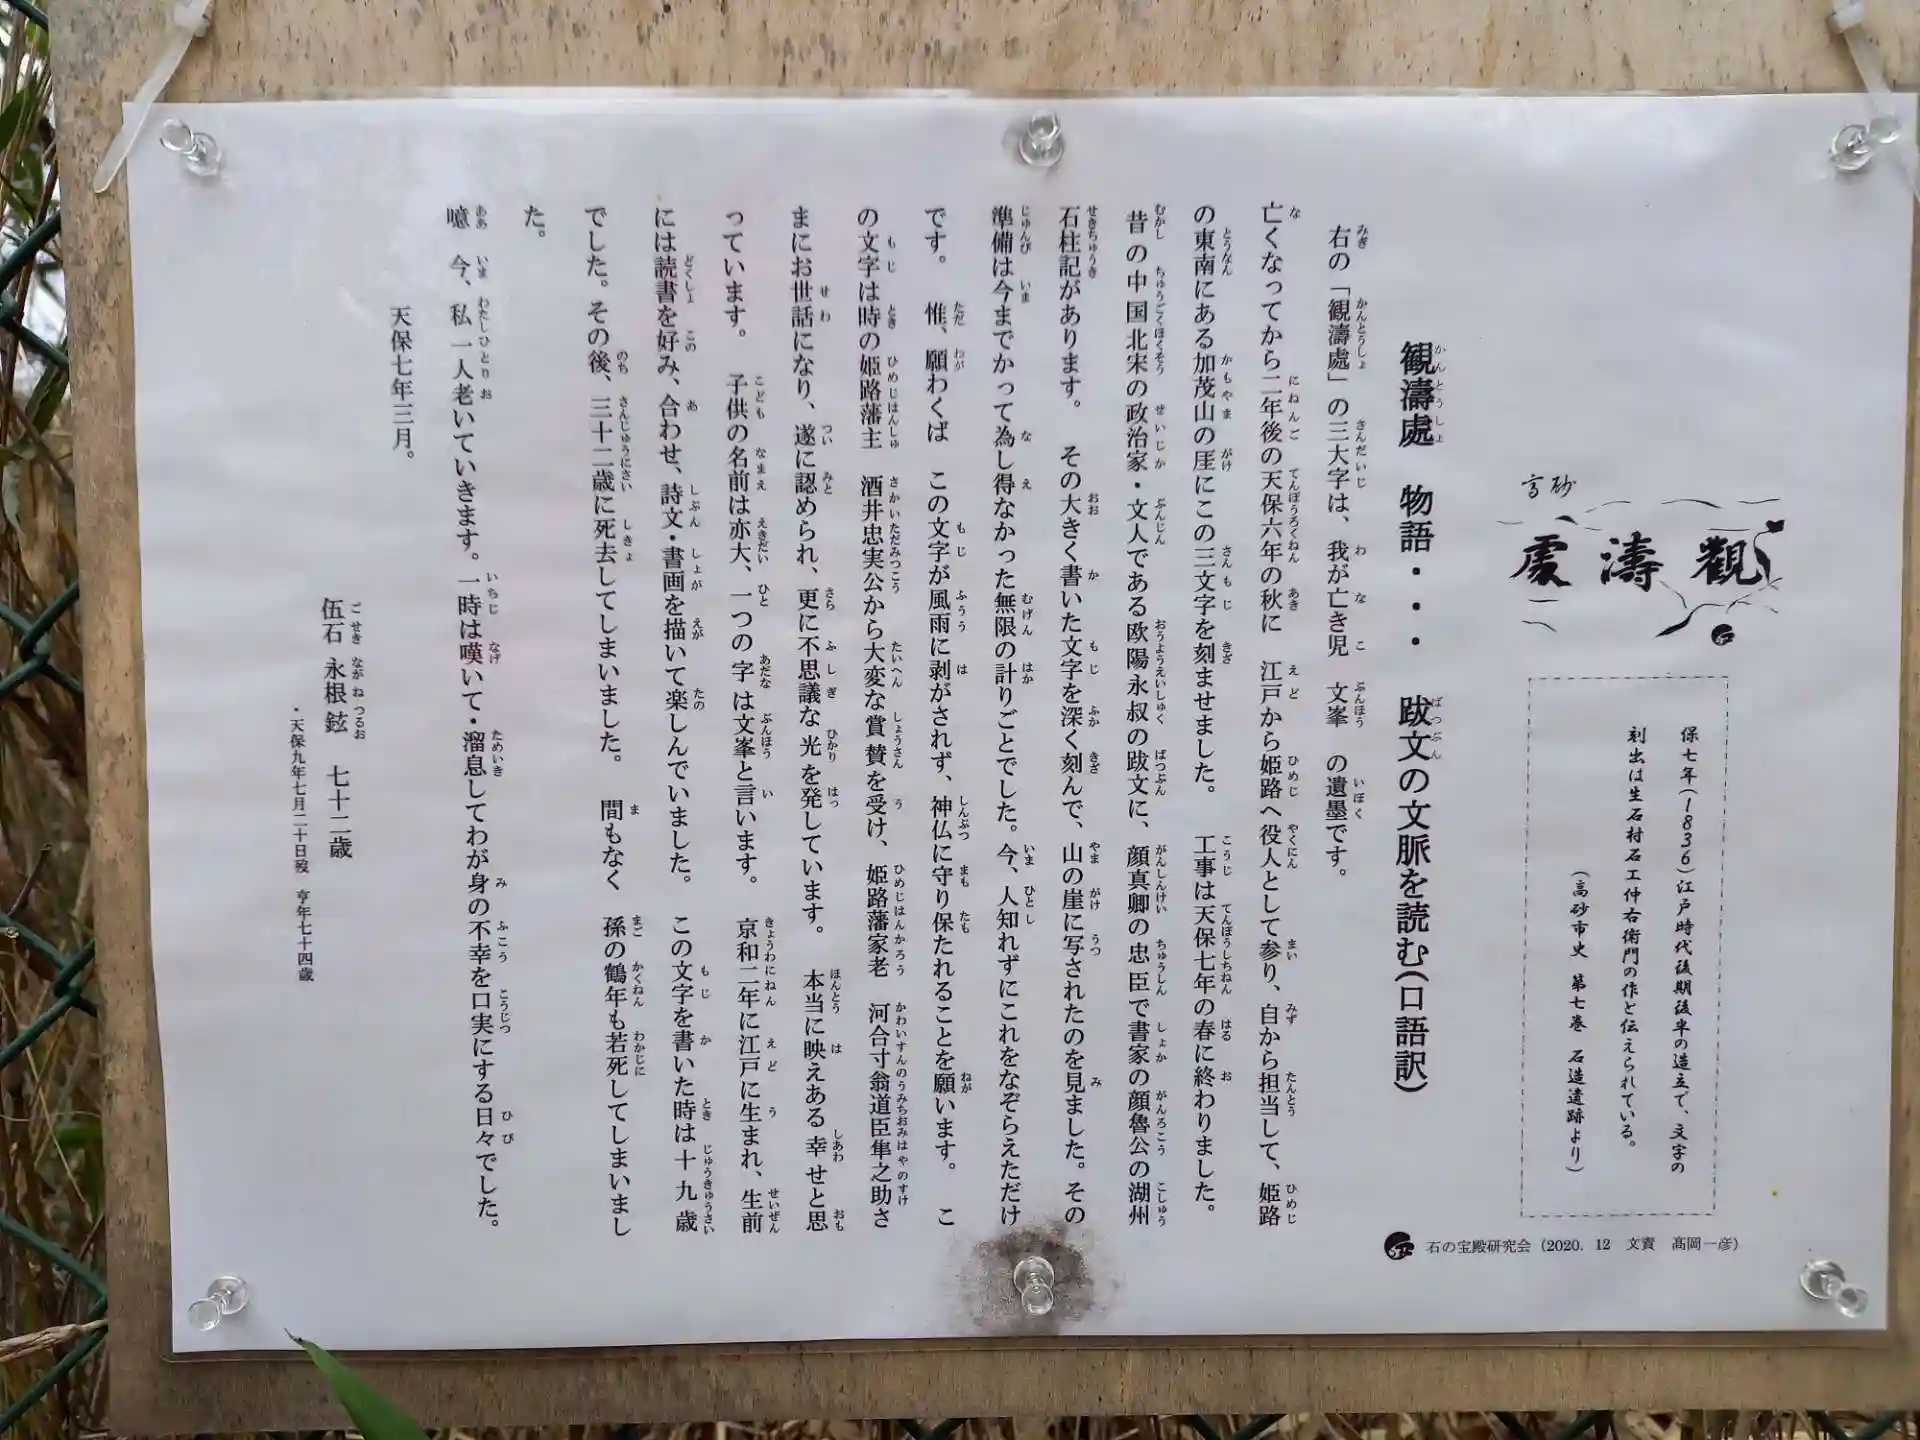 高砂
觀濤處
保七年(1836)江戸時代後期後半の造立で、文字の
刻出は生石村石工仲右衛門の作と伝えられている。
(高砂市史　第七巻　石造遺跡より)
石の宝殿研究会(2020. 12　文責　髙岡一彦)
観濤處　物語・・・跋文の文脈を読む(口語訳)
右の「観濤處」の三大字は、我が亡き児　文峯　の遺墨です。
亡くなってから二年後の天保六年の秋に　江戸から姫路へ役人として参り、自から担当して、姫路
の東南にある加茂山の厓にこの三文字を刻ませました。　工事は天保七年の春に終わりました。
昔の中国北宋の政治家・文人である欧陽永叔の跋文に、顔真卿の忠臣で書家の顔魯公の湖州
石柱記があります。　その大きく書いた文字を深く刻んで、山の崖に写されたのを見ました。その
準備は今までかって為し得なかった無限の計りごとでした。今、人知れずにこれをなぞらえただけ
です。　惟、願わくば　この文字が風雨に剥がされず、神仏に守り保たれることを願います。　こ
の文字は時の姫路藩主　酒井忠実公から大変な賞賛を受け、姫路藩家老　河合寸翁道臣隼之助さ
まにお世話になり、遂に認められ、更に不思議な光を発しています。　本当に映えある幸せと思
っています。　子供の名前は亦大、一つの字は文峯と言います。　京和二年に江戸に生まれ、生前
には読書を好み、合わせ、詩文・書画を描いて楽しんでいました。　この文字を書いた時は十九歳
でした。その後、三十二歳に死去してしまいました。　間もなく　孫の鶴年も若死してしまいまし
た。
噫　今、私一人老いていきます。一時は嘆いて・溜息してわが身の不幸を口実にする日々でした。
天保七年三月。
伍石　永根鉉　七十二歳
・天保九年七月二十日歿　亨年七十四歳